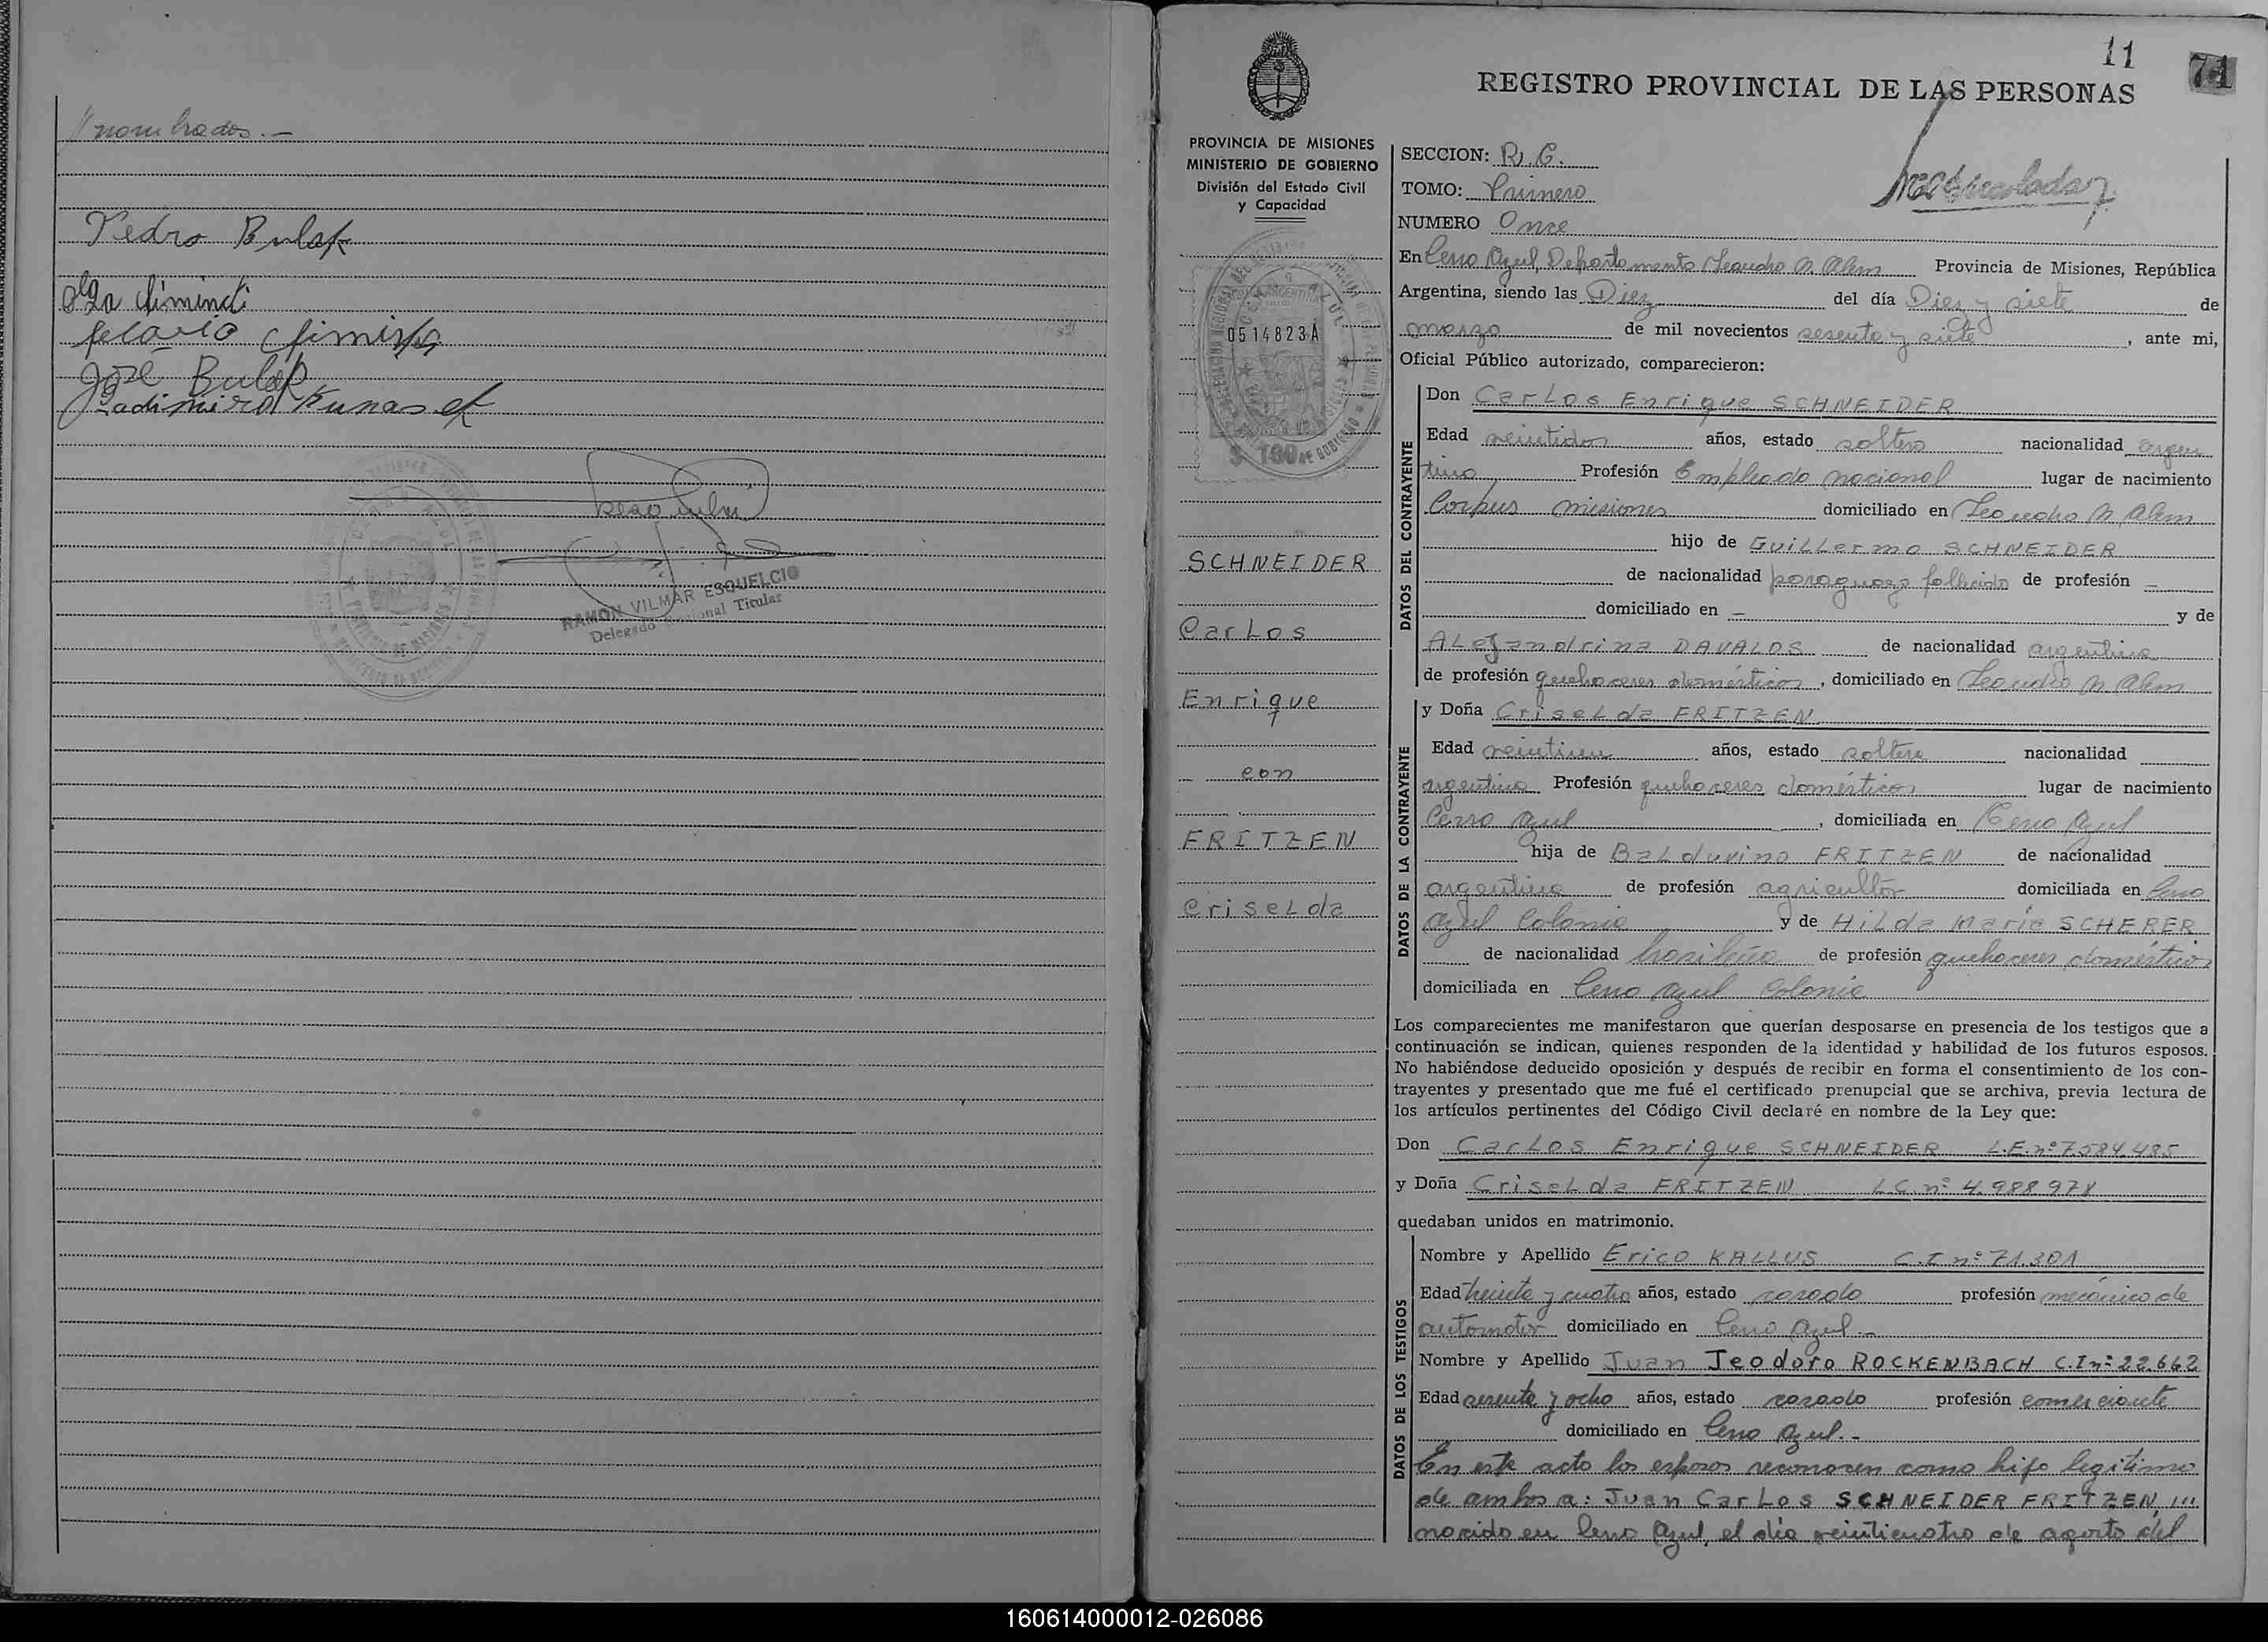 //nombrados.—
Pedro Bulak
José Bulak
RAMON VILMAR ESQUELCIO
Delegado Titular
11
71
REGISTRO PROVINCIAL DE LAS PERSONAS
PROVINCIA DE MISIONES
MINISTERIO DE GOBIERNO
División del Estado Civil
y Capacidad
0514823A
SCHNEIDER
Carlos
Enrique
con
FRITZEN
Criselda
SECCION: R. C.
TOMO: Primero
NUMERO Once
En Cerro Azul, Departamento Leandro N. Alem Provincia de Misiones, República
Argentina, siendo las Diez del día Diez y siete de
marzo de mil novecientos sesenta y siete, ante mi,
Oficial Público autorizado, comparecieron:
DATOS DEL CONTRAYENTE
Don Carlos Enrique SCHNEIDER
Edad veintidos años, estado soltero nacionalidad argen
tino Profesión Empleado nacional lugar de nacimiento
Corpus misiones domiciliado en Leandro N. Alem
hijo de Guillermo SCHNEIDER
de nacionalidad paraguaya fallecido de profesión —
domiciliado en — y de
Alejandrina DAVALOS de nacionalidad argentina
de profesión quehaceres domésticos, domiciliado en Leandro N. Alem
DATOS DE LA CONTRAYENTE
y Doña Criselda FRITZEN
Edad veintiun años, estado soltera nacionalidad
argentina Profesión quehaceres domésticos lugar de nacimiento
Cerro Azul, domiciliada en Cerro Azul
hija de Balduvino FRITZEN de nacionalidad
argentina de profesión agricultor domiciliada en Cerro
Azul Colonia y de Hilda María SCHERER
de nacionalidad brasileña de profesión quehaceres domésticos
domiciliada en Cerro Azul Colonia
Los comparecientes me manifestaron que querían desposarse en presencia de los testigos que a
continuación se indican, quienes responden de la identidad y habilidad de los futuros esposos.
No habiéndose deducido oposición y después de recibir en forma el consentimiento de los con-
trayentes y presentado que me fué el certificado prenupcial que se archiva, previa lectura de
los artículos pertinentes del Código Civil declaré en nombre de la Ley que:
Don Carlos Enrique SCHNEIDER L.E. nº 7.584.485
y Doña Criselda FRITZEN L.C. nº 4.988.978
quedaban unidos en matrimonio.
DATOS DE LOS TESTIGOS
Nombre y Apellido Erico KALLUS C.I nº 71.301
Edad treinta y cuatro años, estado casado profesión mecánico de
automotor domiciliado en Cerro Azul.-
Nombre y Apellido Juan Teodoro ROCKENBACH C.I nº 22.662
Edad sesenta y ocho años, estado casado profesión comerciante
domiciliado en Cerro Azul.-
En este acto los esposos reconocen como hijo legitimo
de ambos a: Juan Carlos SCHNEIDER FRITZEN, ///
nacido en Cerro Azul, el día veinticuatro de agosto del
160614000012-026086